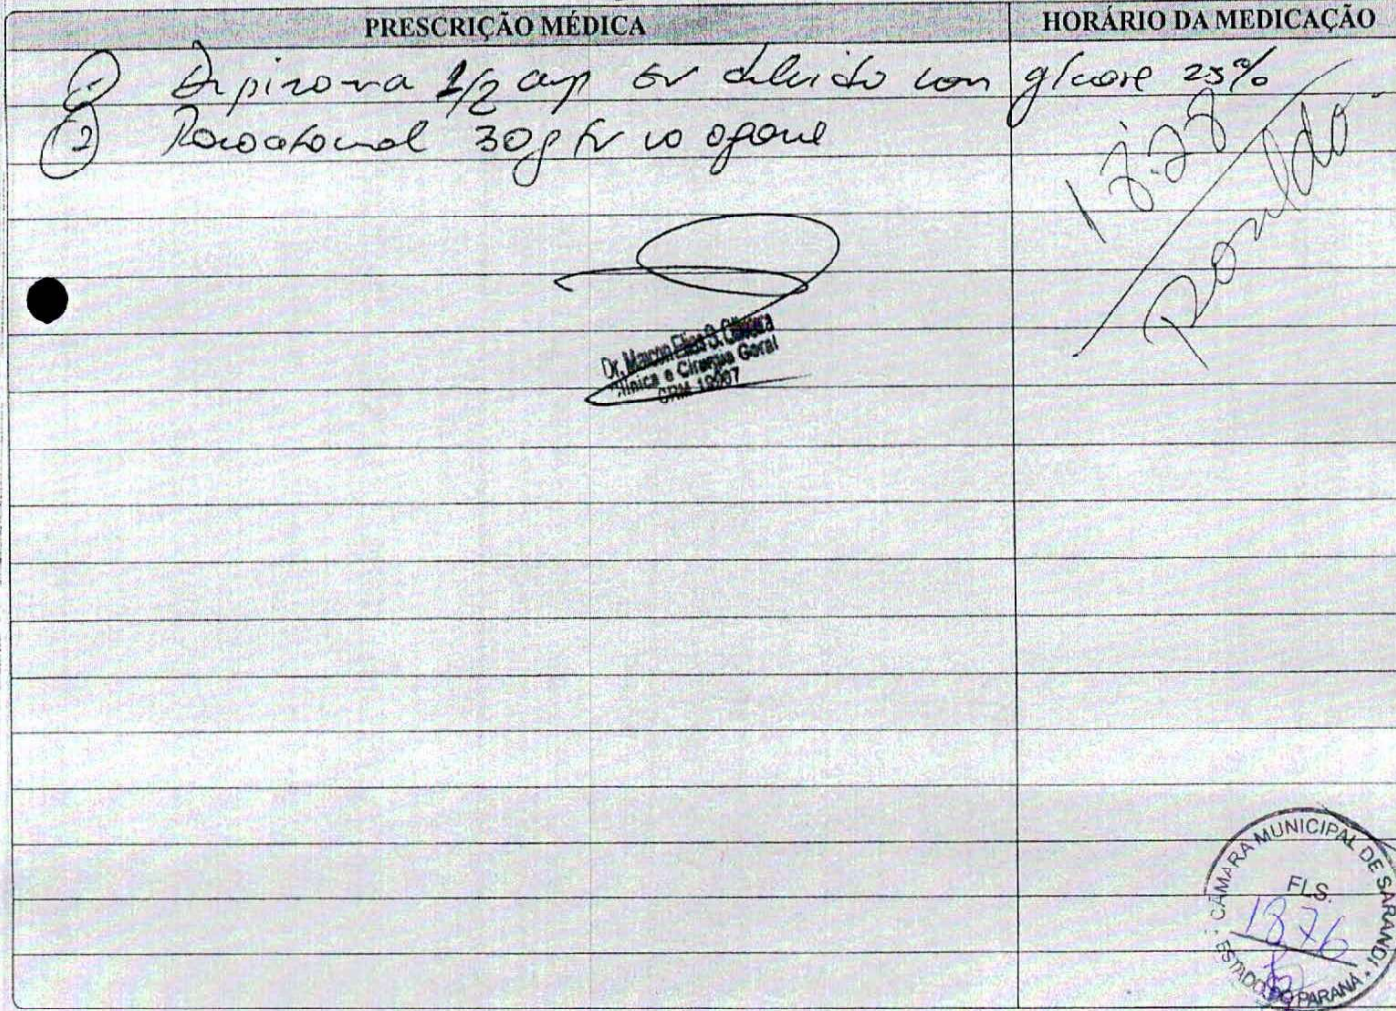 PRESCRIÇÃO MÉDICA HORÁRIO DA MEDICAÇÃO
1 Dipirona 1/2 amp EV diluido com glicose 25%
2 Paracetamol 30g EV
Ronaldo
Dr. Marcon Elias S. Oliveira
Clínica e Cirurgia Geral
CRM
CÂMARA MUNICIPAL DE SARANDI
FLS.
1876
ESTADO DO PARANÁ